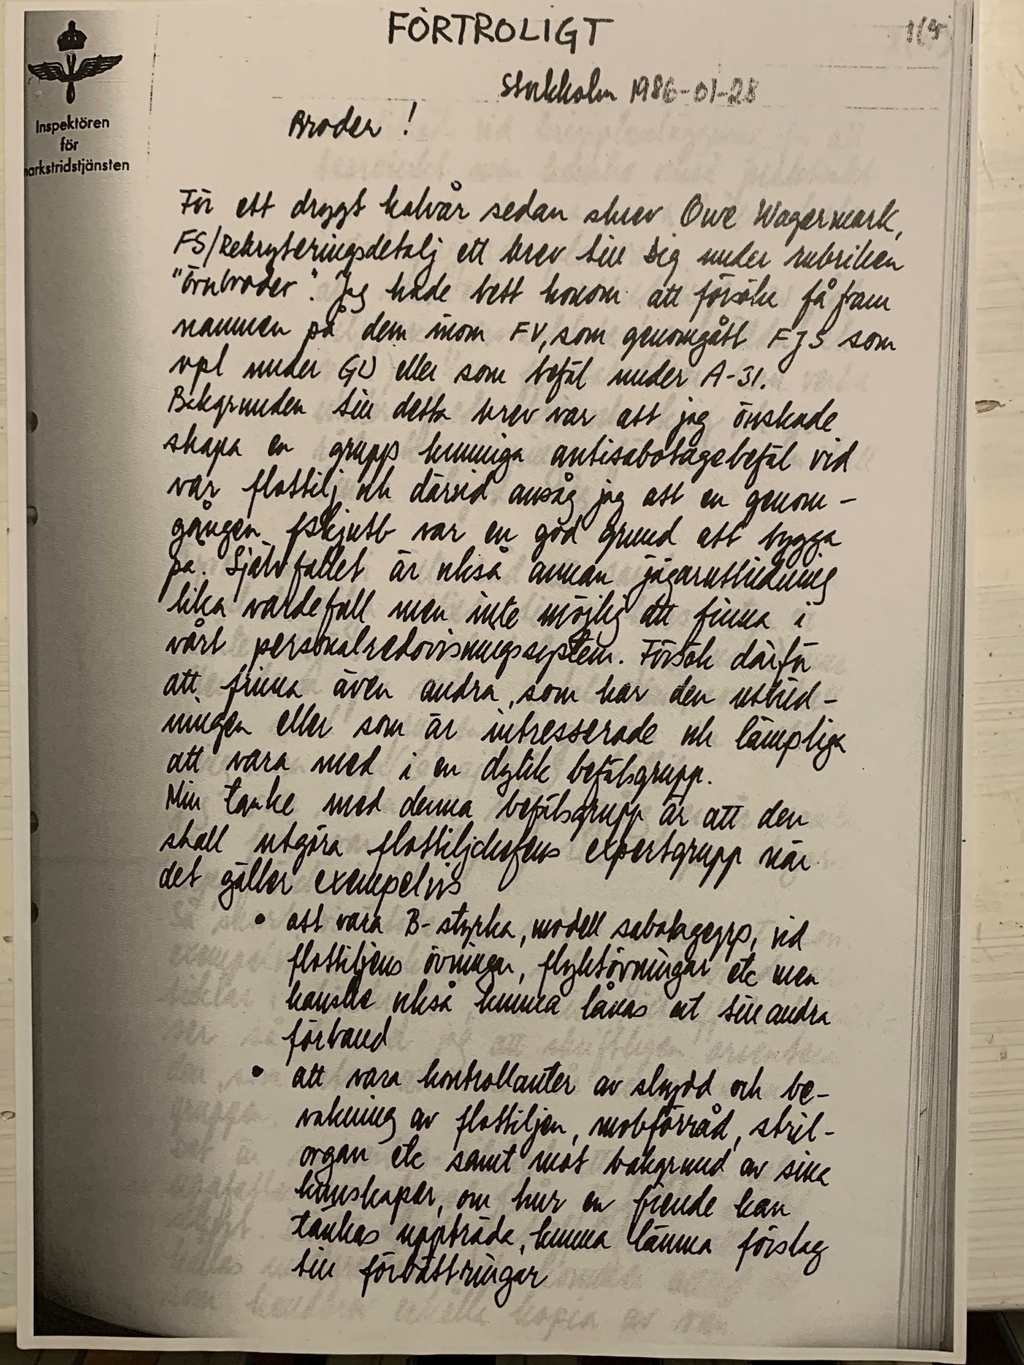 FÖRTROLIGT
Inspektören
för
arkstridstjänsten
Stockholm 1986-01-28
Broder!
För ett drygt halvår sedan skrev Owe Wagermark,
FS/Rekryteringsdetalj ett brev till Dig under rubriken
"Örnbroder". Jag hade bett honom att försöka få fram
namnen på dem inom FV, som genomgått FJS som
vpl under GU eller som befäl under A-31.
Bakgrunden till detta brev var att jag önskade
skapa en grupp kunniga antisabotagebefäl vid
var flottilj och därvid ansåg jag att en genom-
gången fskjutb var en god grund att bygga
på. Självfallet är också annan jägarutbildning
lika värdefull men inte möjlig att finna i
vårt personalredovisningssystem. Försök därför
att finna även andra, som har den utbild-
ningen eller som är intresserade och lämpliga
att vara med i en dylik befälsgrupp.
Min tanke med denna befälsgrupp är att den
skall utgöra flottiljchefens expertgrupp när
det gäller exempelvis
• att vara B-styrka, modell sabotagegrp, vid
flottiljens övningar, flyktövningar etc men
kanske också kunna lånas ut till andra
förband
• att vara kontrollanter av skydd och be-
vakning av flottiljen, mobförråd, stril-
organ etc samt mot bakgrund av sina
kunskaper, om hur en fiende kan
tänkas uppträda, kunna lämna förslag
till förbättringar